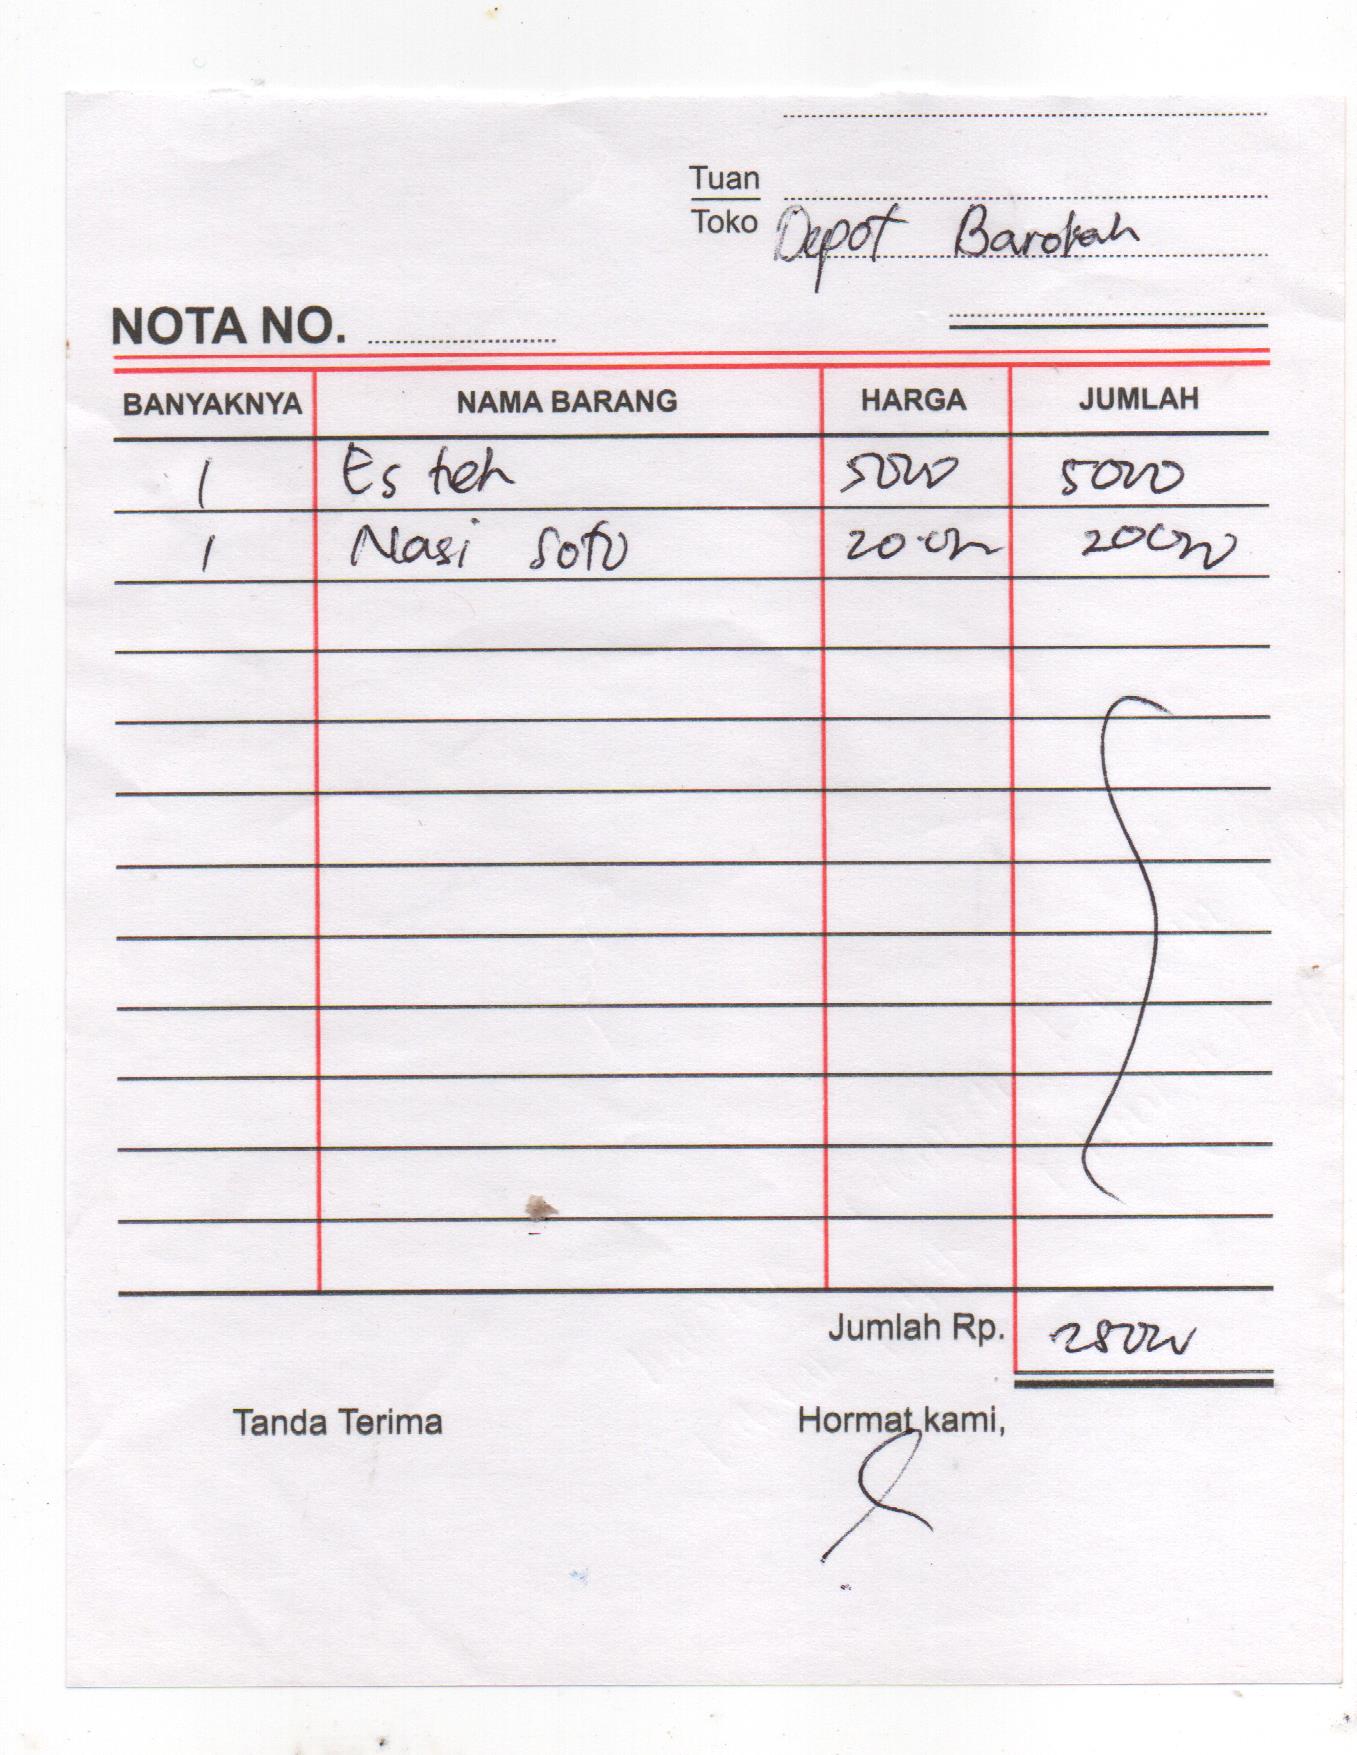 Tuan
Toko Depot Barokah
NOTA NO.
BANYAKNYA NAMA BARANG HARGA JUMLAH
1 Es teh 5000 5000
1 Nasi soto 20.000 20000
Jumlah Rp. 25000
Tanda Terima Hormat kami,